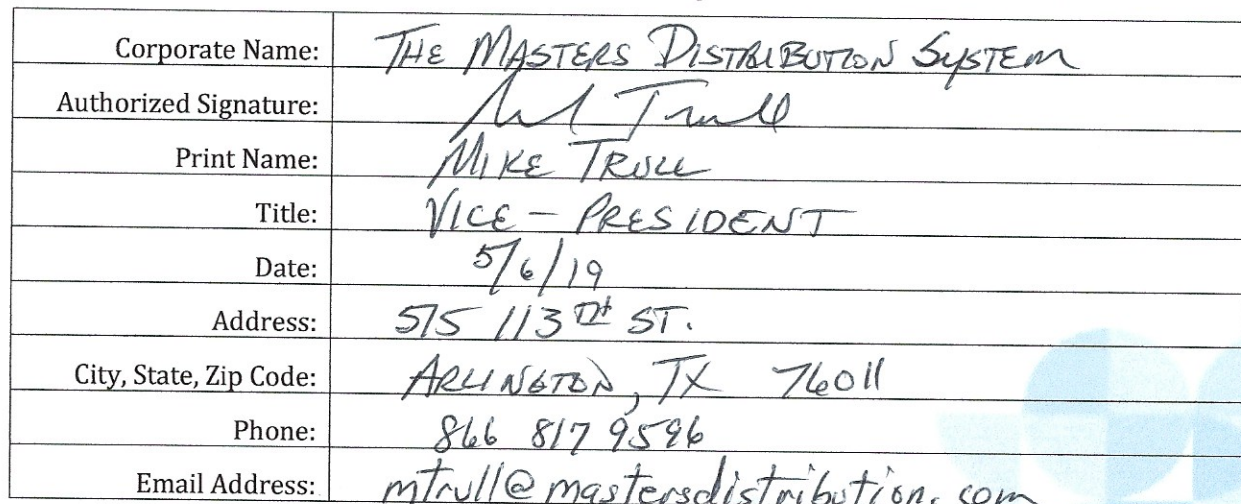 Corporate Name: THE MASTERS DISTRIBUTION SYSTEM
Authorized Signature: Trull
Print Name: MIKE TRULL
Title: VICE - PRESIDENT
Date: 5/6/19
Address: 515 113TH ST.
City, State, Zip Code: ARLINGTON, TX 76011
Phone: 866 817 9596
Email Address: mtrull@mastersdistribution.com